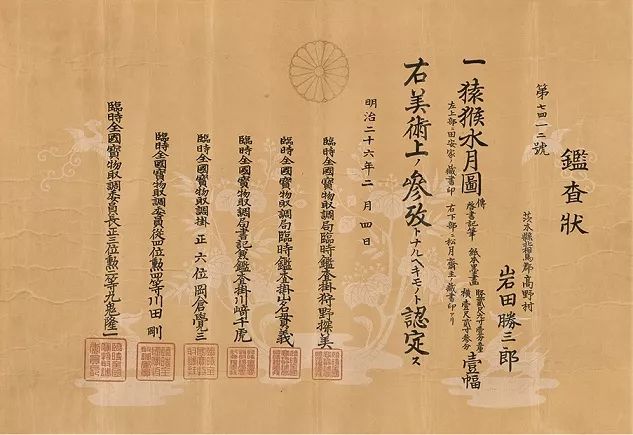 鑑査状
第七四一二號
茨木縣北相馬郡高野村
岩田勝三郎
一猿猴水月圖 傳啓書記筆 紙本墨畫 竪貳尺九寸壹分五厘 横壹尺貳寸参分 壹幅
左上部ニ田安家ノ藏書印 右下部ニ松月齋主ノ藏書印アリ
右美術上ノ參攷トナルヘキモノト認定ス
明治二十六年二月四日
臨時全國寳物取調局臨時鑑査掛狩野探美
臨時全國寳物取調局臨時鑑査掛山名貫義
臨時全國寳物取調局書記兼鑑査掛川崎千虎
臨時全國寳物取調掛正六位岡倉覺三
臨時全國寳物取調委員從四位勲四等川田剛
臨時全國寳物取調委員長正三位勲二等九鬼隆一